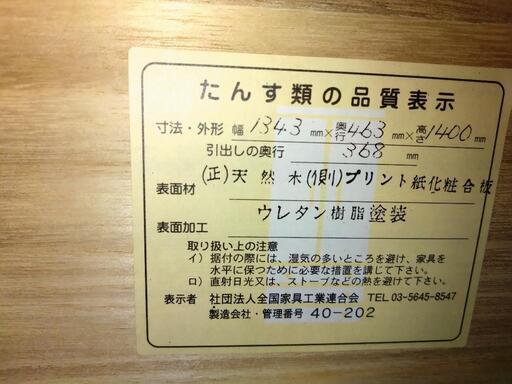 たんす類の品質表示
寸法・外形 幅1343mm×奥行463mm×高さ1400mm
引出しの奥行 368 mm
表面材 (正)天然木(側)プリント紙化粧合板
表面加工 ウレタン樹脂塗装
取り扱い上の注意
イ）据付の際には、湿気の多いところを避け、家具を
水平に保つために必要な措置を講じて下さい。
ロ）直射日光又は、ストーブなどの熱を避けて下さい。
表示者 社団法人全国家具工業連合会 TEL 03-5645-8547
製造会社・管理番号 40-202